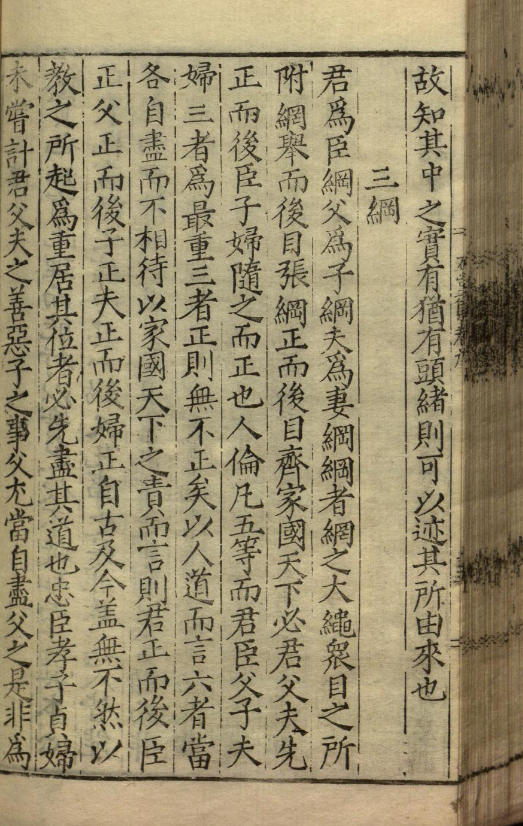 故知其中之實有猶有頭緒則可以迹其所由來也
三綱
君爲臣綱父爲子綱夫爲妻綱綱者網之大䋲衆目之所
附網舉而後目張綱正而後目齊家國天下必君父夫先
正而後臣子婦隨之而正也人倫凡五等而君臣父子夫
婦三者爲最重三者正則無不正矣以人道而言六者當
各自盡而不相待以家國天下之責而言則君正而後臣
正父正而後子正夫正而後婦正自古及今盖無不然以
教之所起爲重居其位者必先盡其道也忠臣孝子貞婦
未嘗計君父夫之善惡子之事父尤當自盡父之是非爲